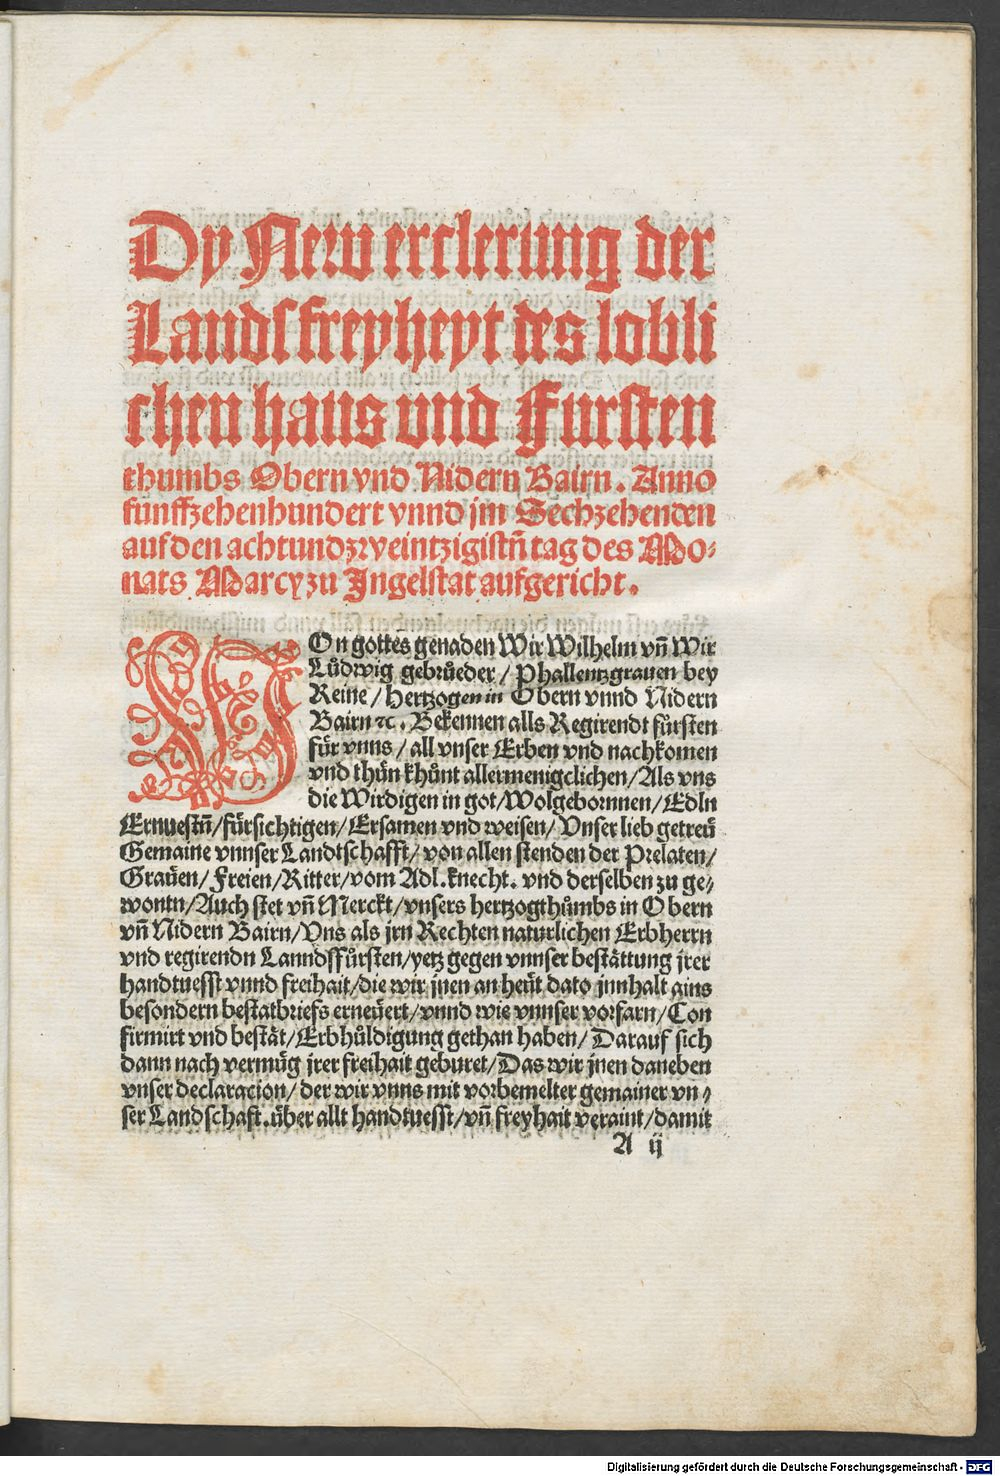 Dy New erclerung der
Landsfreyheyt des lobli
chen haus und Fursten
thumbs Obern vnd Nidern Bairn. Anno
funffzehenhundert vnnd jm Sechzehenden
auf den achtundzweintzigistñ tag des Mo⸗
nats Marcy zu Jngelstat aufgericht.
VOn gottes genaden Wir Wilhelm vñ Wir
Lůdwig gebrůeder / Phallentzgrauen bey
Reine / Hertzogen in Obern vnnd Nidern
Bairn ꝛc. Bekennen alls Regirendt fürsten
für vnns / all vnser Erben vnd nachkomen
vnd thůn khůnt allermenigclichen / Als vns
die Wirdigen in got / Wolgebornnen / Edln
Ernuestñ / fürsichtigen / Ersamen vnd weisen / Vnser lieb getreü
Gemaine vnnser Landtschafft / von allen stenden der Prelaten /
Graüen / Freien / Ritter / vom Adl. knecht. vnd derselben zu ge⸗
wontn / Auch stet vñ Merckt / vnsers hertzogthůmbs in Obern
vñ Nidern Bairn / Vns als jrn Rechten naturlichen Erbherrn
vnd regirendn Lanndsfůrsten / yetz gegen vnnser bestättung jrer
handtuesst vnnd freihait / die wir jnen an heüt dato jnnhalt ains
besondern bestatbriefs erneüert / vnnd wie vnnser vorfarn / Con
firmirt vnd bestät / Erbhůldigung gethan haben / Darauf sich
dann nach vermüg jrer freihait geburet / Das wir jnen daneben
vnser declaracion / der wir vnns mit vorbemelter gemainer vn⸗
ser Landschaft. über allt handtuesst / vñ freyhait veraint / damit
A ij
Digitalisierung gefördert durch die Deutsche Forschungsgemeinschaft - DFG